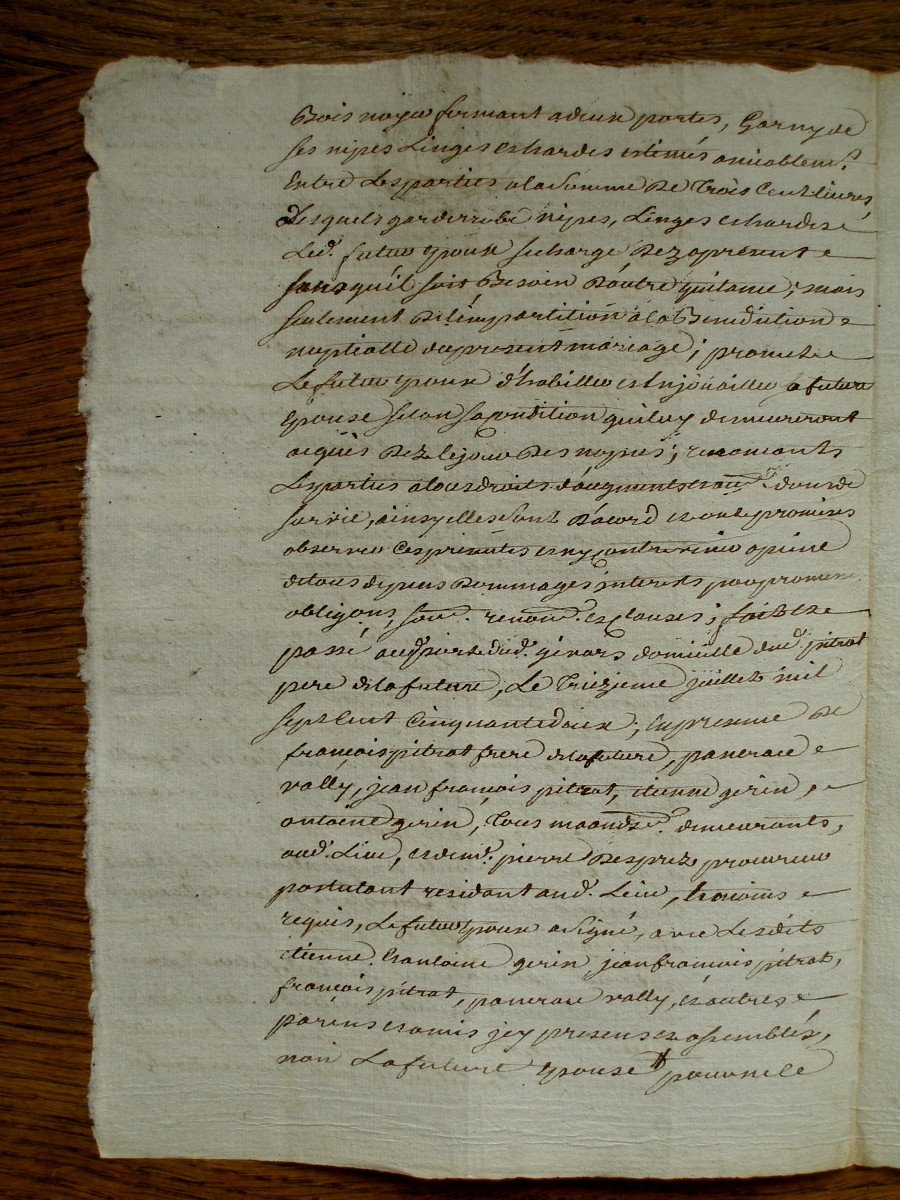 Bois noyer fermant a deux portes, Garny de
ses nipes Linges et hardes estimés amiablem.t
Entre Les parties a la somme De Trois Cent Livres,
Lesquels garderrobe nipes, Linges et hardes
Led. futur epoux se charge Dez a present
sans qu'il soit Besoin D'autre quitance, mais
seulement De l'impartition a la Benediction
nuptialle du present mariage; promet
Le futur epoux d'habiller et Enjoüailler sa future
Epouse selon sa condition qui luy demeureront
aquis Dez le jour Des nopces;
Les parties a tous droits d'augments et de
survie, ainsy elles sont D'acord et ont promis
observer Ces presentes et ny contrevenir a peine
de tous depens Dommages interests par promesses
obligons, soum. renon. et clauses; fait et
passé aud. domicille dud. pitrat
pere de la future, Le Treizieme juillet mil
sept Cent Cinquante deux; En presence De
françois pitrat frere de la future, pancrace
vally, jean françois pitrat, etienne gerin,
antoine gerin, Tous demeurants,
aud. Lieu, et de m.e pierre Desprez procureur
postulant residant aud. Lieu, temoins
requis, Le futur epoux a signé, avec Lesdits
etienne Et antoine gerin, jean francois pitrat,
françois pitrat, pancrace vally, et autres
parens et amis jcy presens et assemblés,
non La future epouse pour ne le